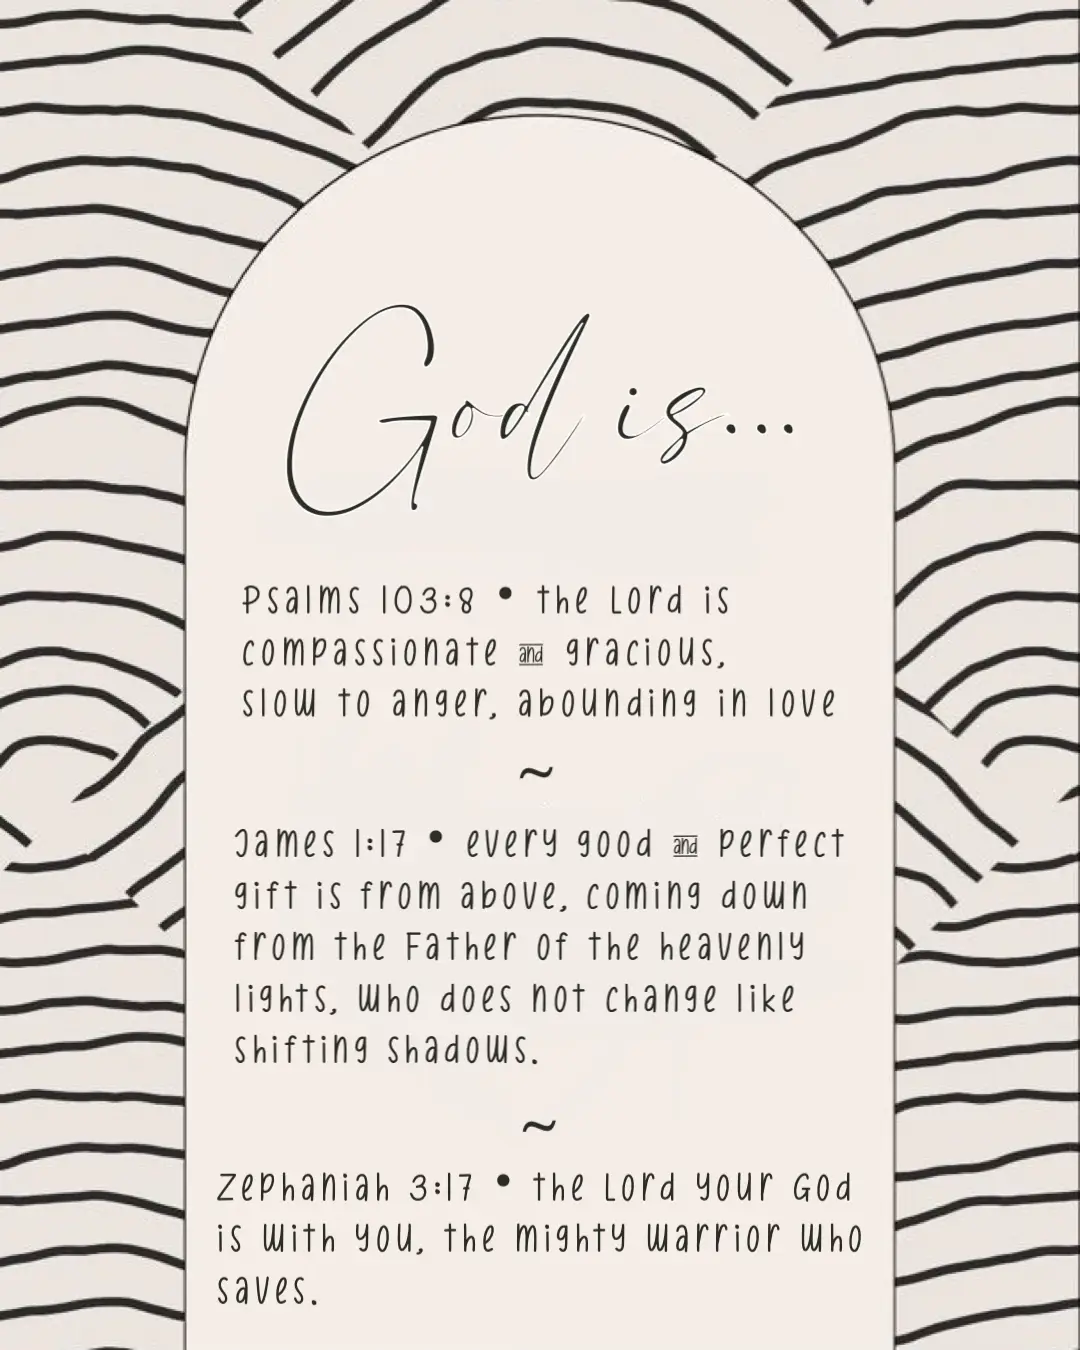 God is...
Psalms 103:8 • the Lord is
compassionate and gracious,
slow to anger, abounding in love
~
James 1:17 • every good and perfect
gift is from above, coming down
from the Father of the heavenly
lights, who does not change like
shifting shadows.
~
Zephaniah 3:17 • the Lord your God
is with you, the mighty warrior who
saves.